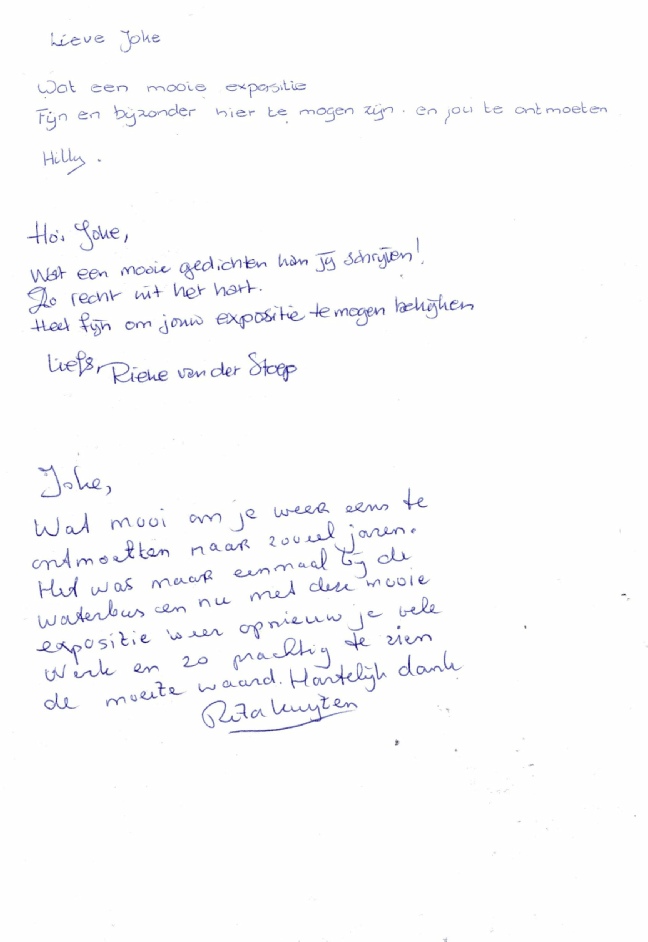 Lieve Joke
Wat een mooie expositie
Fijn en bijzonder hier te mogen zijn. en jou te ontmoeten
Hilly.
Hoi Joke,
Wat een mooie gedichten kan jij schrijven!
Zo recht uit het hart.
Heel fijn om jouw expositie te mogen bekijken
Liefs, Rieke van der Stoep
Joke,
Wat mooi om je weer eens te
ontmoetten naar zoveel jaren.
Het was maar eenmaal bij de
waterbus en nu met deze mooie
expositie weer opnieuw je vele
werk en zo prachtig te zien
de moeite waard. Hartelijk dank
Rita Kuyten